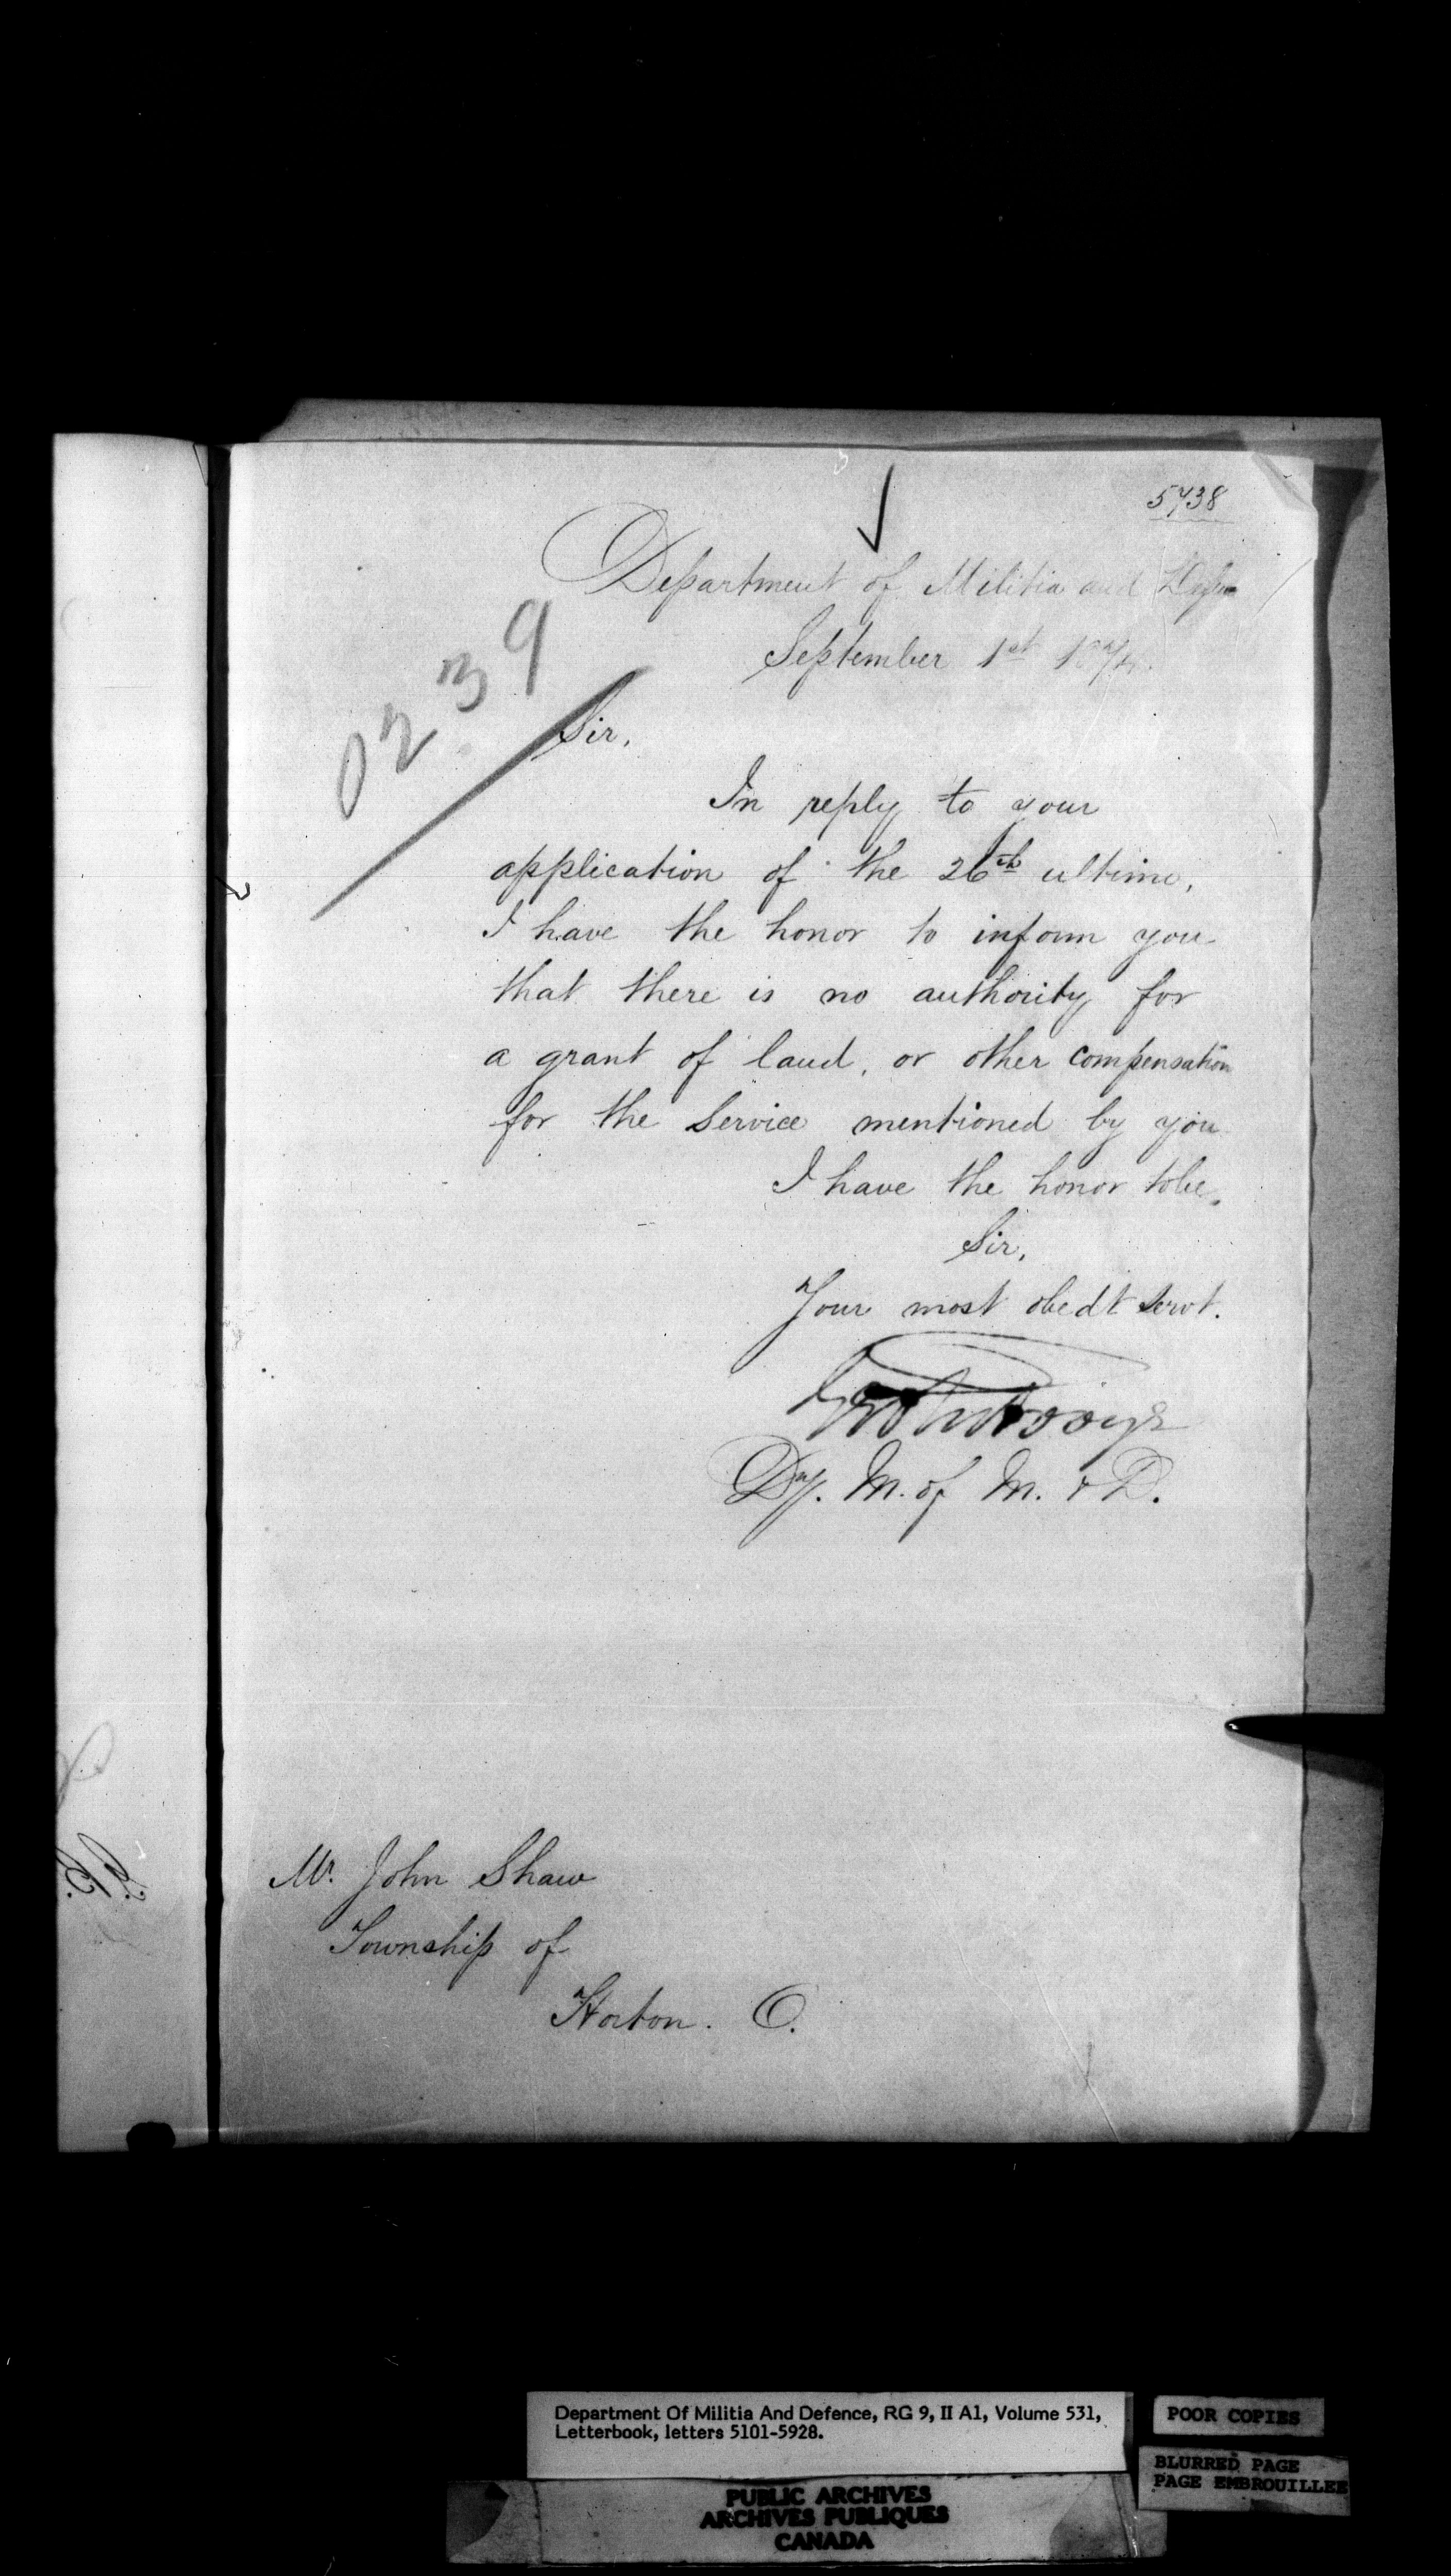 5738
Department of Militia and
September 1st
0239
Sir,
In reply to your
application of the 26th ultimo,
I have the honor to inform you
that there is no authority for
a grant of land, or other compensation
for the Service mentioned by you
I have the honor to be,
Sir,
Your most obedt Servt.
Dy. M. of M. & D.
Mr. John Shaw
Township of
Horton. O.
Department Of Militia And Defence, RG 9, II A1, Volume 531,
Letterbook, letters 5101-5928.
POOR COPIES
BLURRED PAGE
PAGE EMBROUILLEE
PUBLIC ARCHIVES
ARCHIVES PUBLIQUES
CANADA